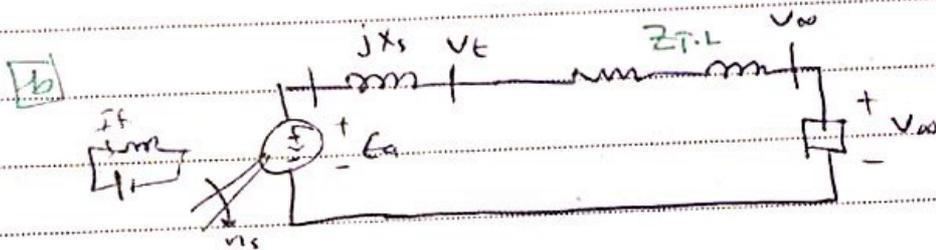 jXs Vt Z T.L V∞
b
If
+ Ea -
+ V∞ -
ns